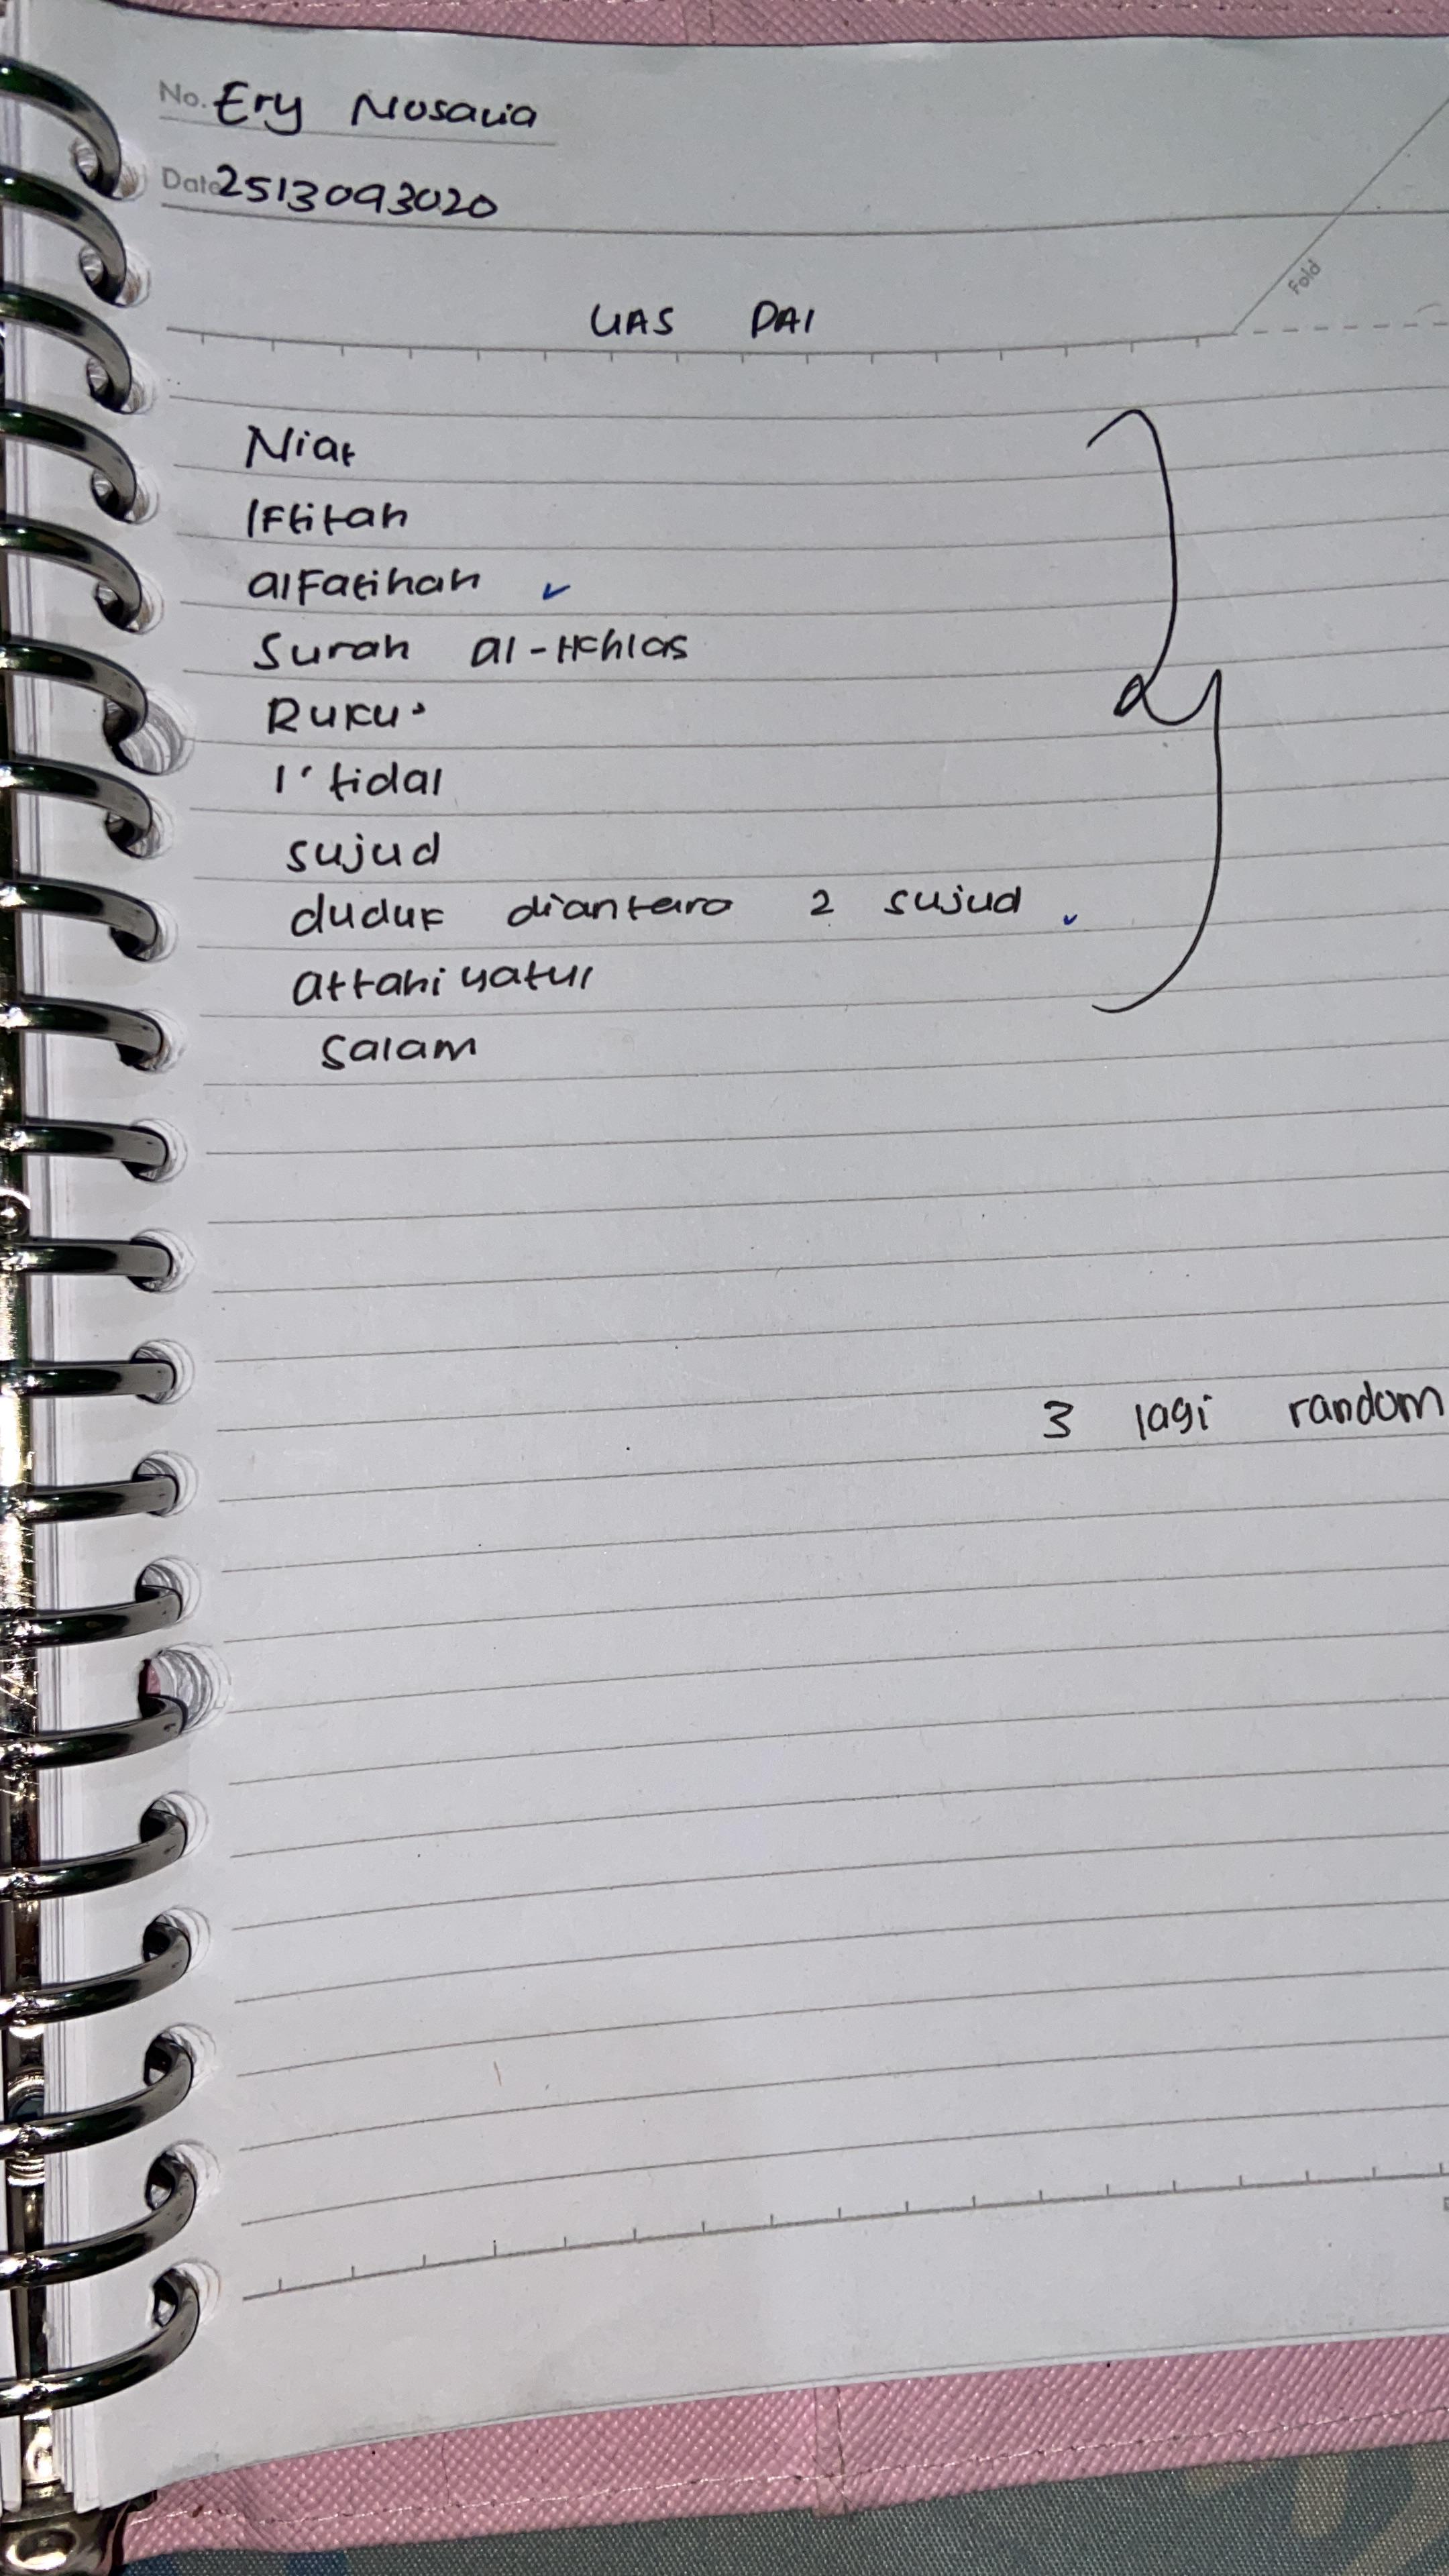 No. Ery Nosavia
Date 2513093020
Fold
UAS PAI
Niat
Iftitah
alfatihah ✓
Surah al-Ikhlas
Ruku'
I'tidal
sujud
duduk diantara 2 sujud ✓
attahiyatul
Salam
3 lagi random